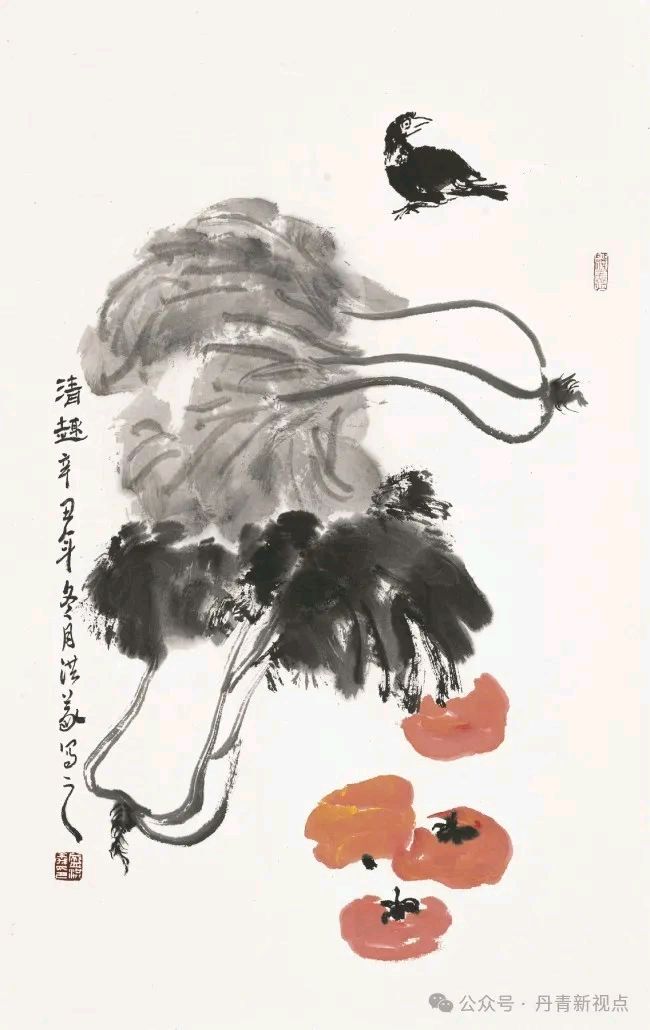 清趣 辛丑年冬月洪義写之
公众号·丹青新视点